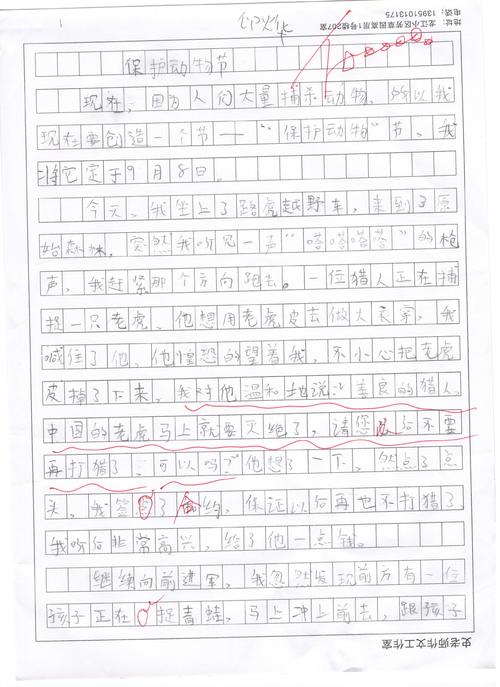 地址: 龙江小区芳草园高层1号楼207室
电话: 13951013175
保护动物节
现在，因为人们大量捕杀动物，所以我
现在要创造一个节——“保护动物”节，我
将它定于9月8日。
今天，我坐上了路虎越野车，来到了原
始森林，突然我听见一声“嗒嗒嗒嗒”的枪
声，我赶紧那个方向跑去。一位猎人正在捕
捉一只老虎，他想用老虎皮去做大衣穿，我
喊住了他，他惶恐的望着我，不小心把老虎
皮掉了下来，我对他温和地说：“善良的猎人，
中国的老虎马上就要灭绝了，请您以后不要
再打猎了，可以吗？”他想了一下，然点了点
头，我签了合约，保证以后再也不打猎了，
我听后非常高兴，给了他一点钱。
继续向前进军，我忽然发现前方有一位
孩子正在捉青蛙，马上冲上前去，跟孩子
史老师作文工作室